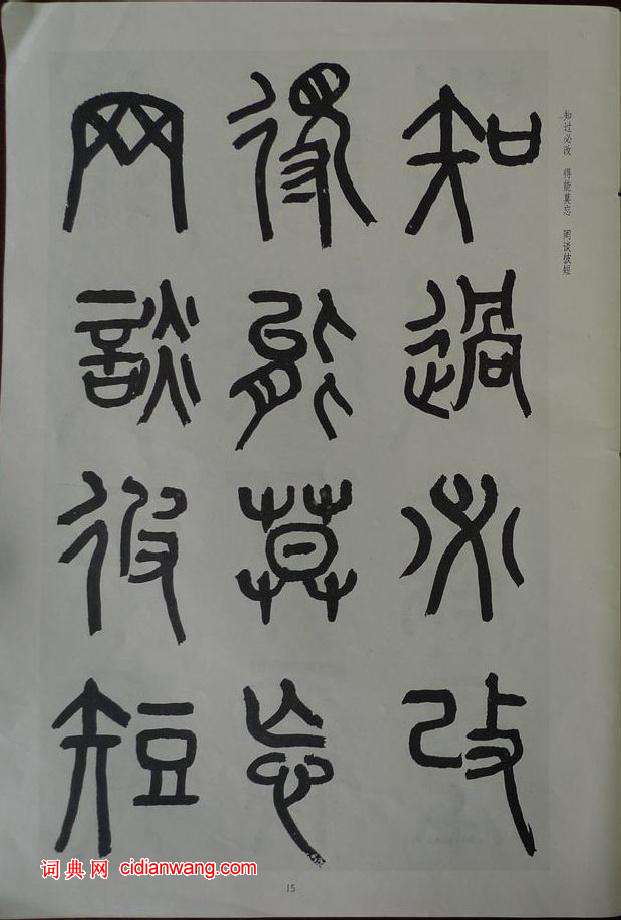 知過必改
得能莫忘
网談彼短
知过必改 得能莫忘 罔谈彼短
词典网 cidianwang.com
15